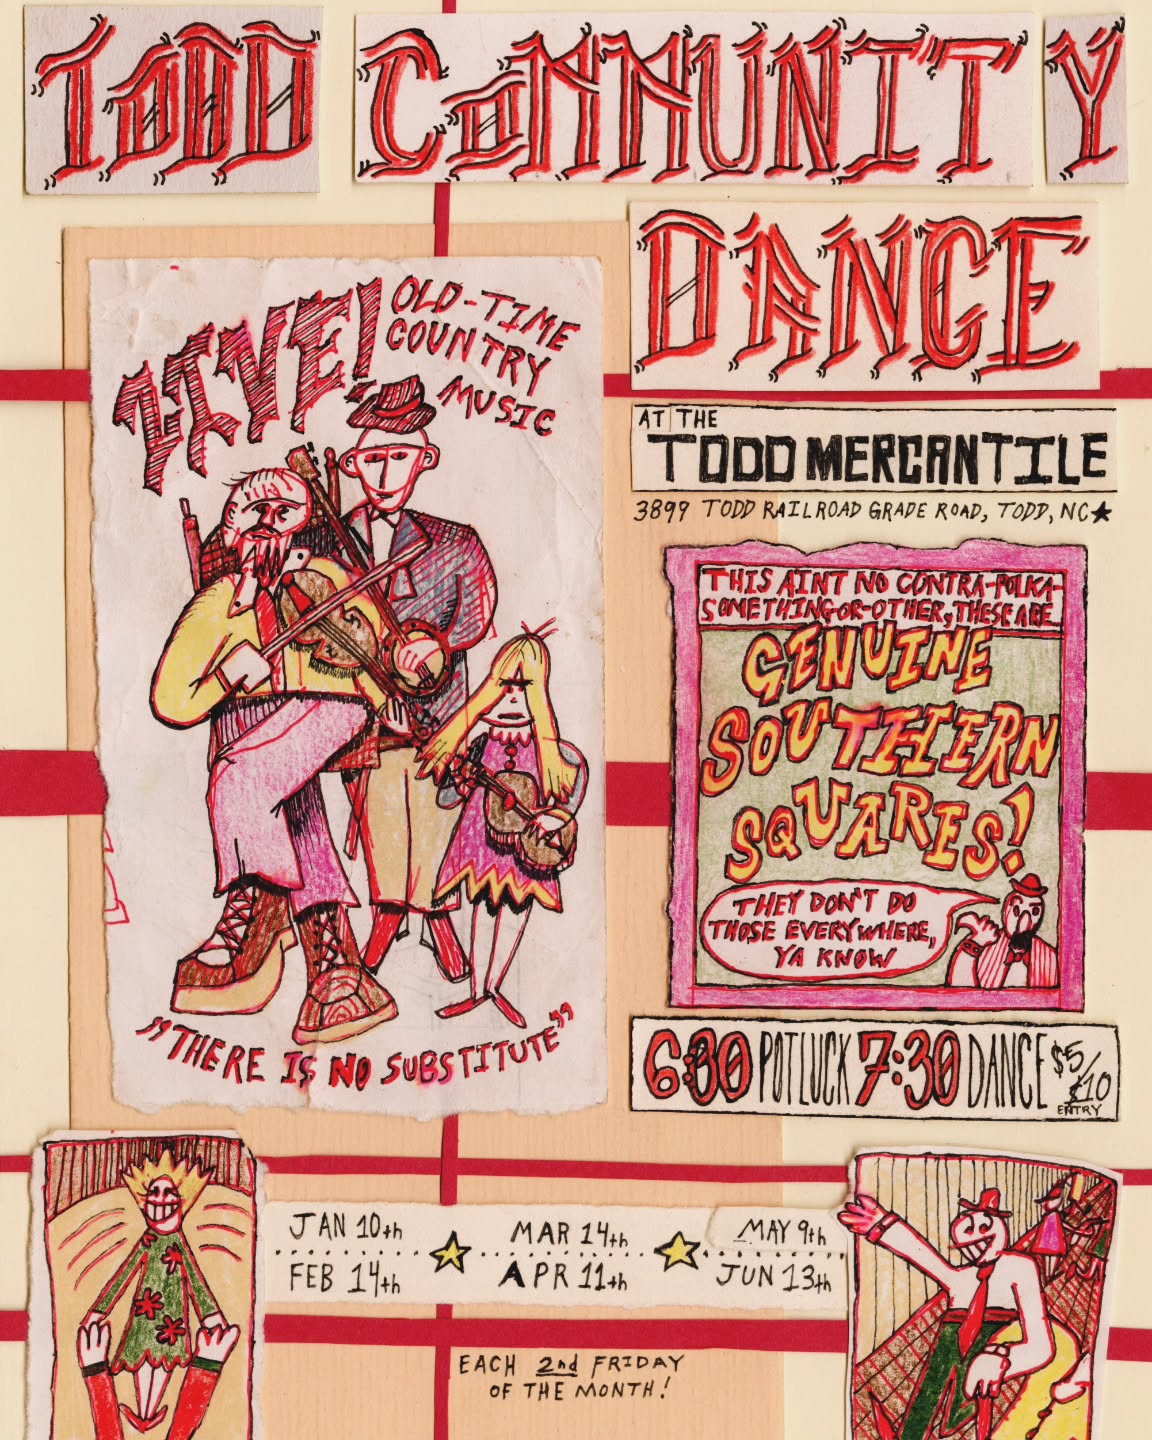 TODD COMMUNITY
DANCE
LIVE! OLD-TIME
COUNTRY
MUSIC
"THERE IS NO SUBSTITUTE"
AT THE
TODD MERCANTILE
3899 TODD RAILROAD GRADE ROAD, TODD, NC★
THIS AINT NO CONTRA-POLKA-
SOMETHING-OR-OTHER, THESE ARE
GENUINE
SOUTHERN
SQUARES!
THEY DON'T DO
THOSE EVERYWHERE,
YA KNOW
6:30 POTLUCK 7:30 DANCE $5/
$10
ENTRY
JAN 10th MAR 14th MAY 9th
FEB 14th APR 11th JUN 13th
EACH 2nd FRIDAY
OF THE MONTH!